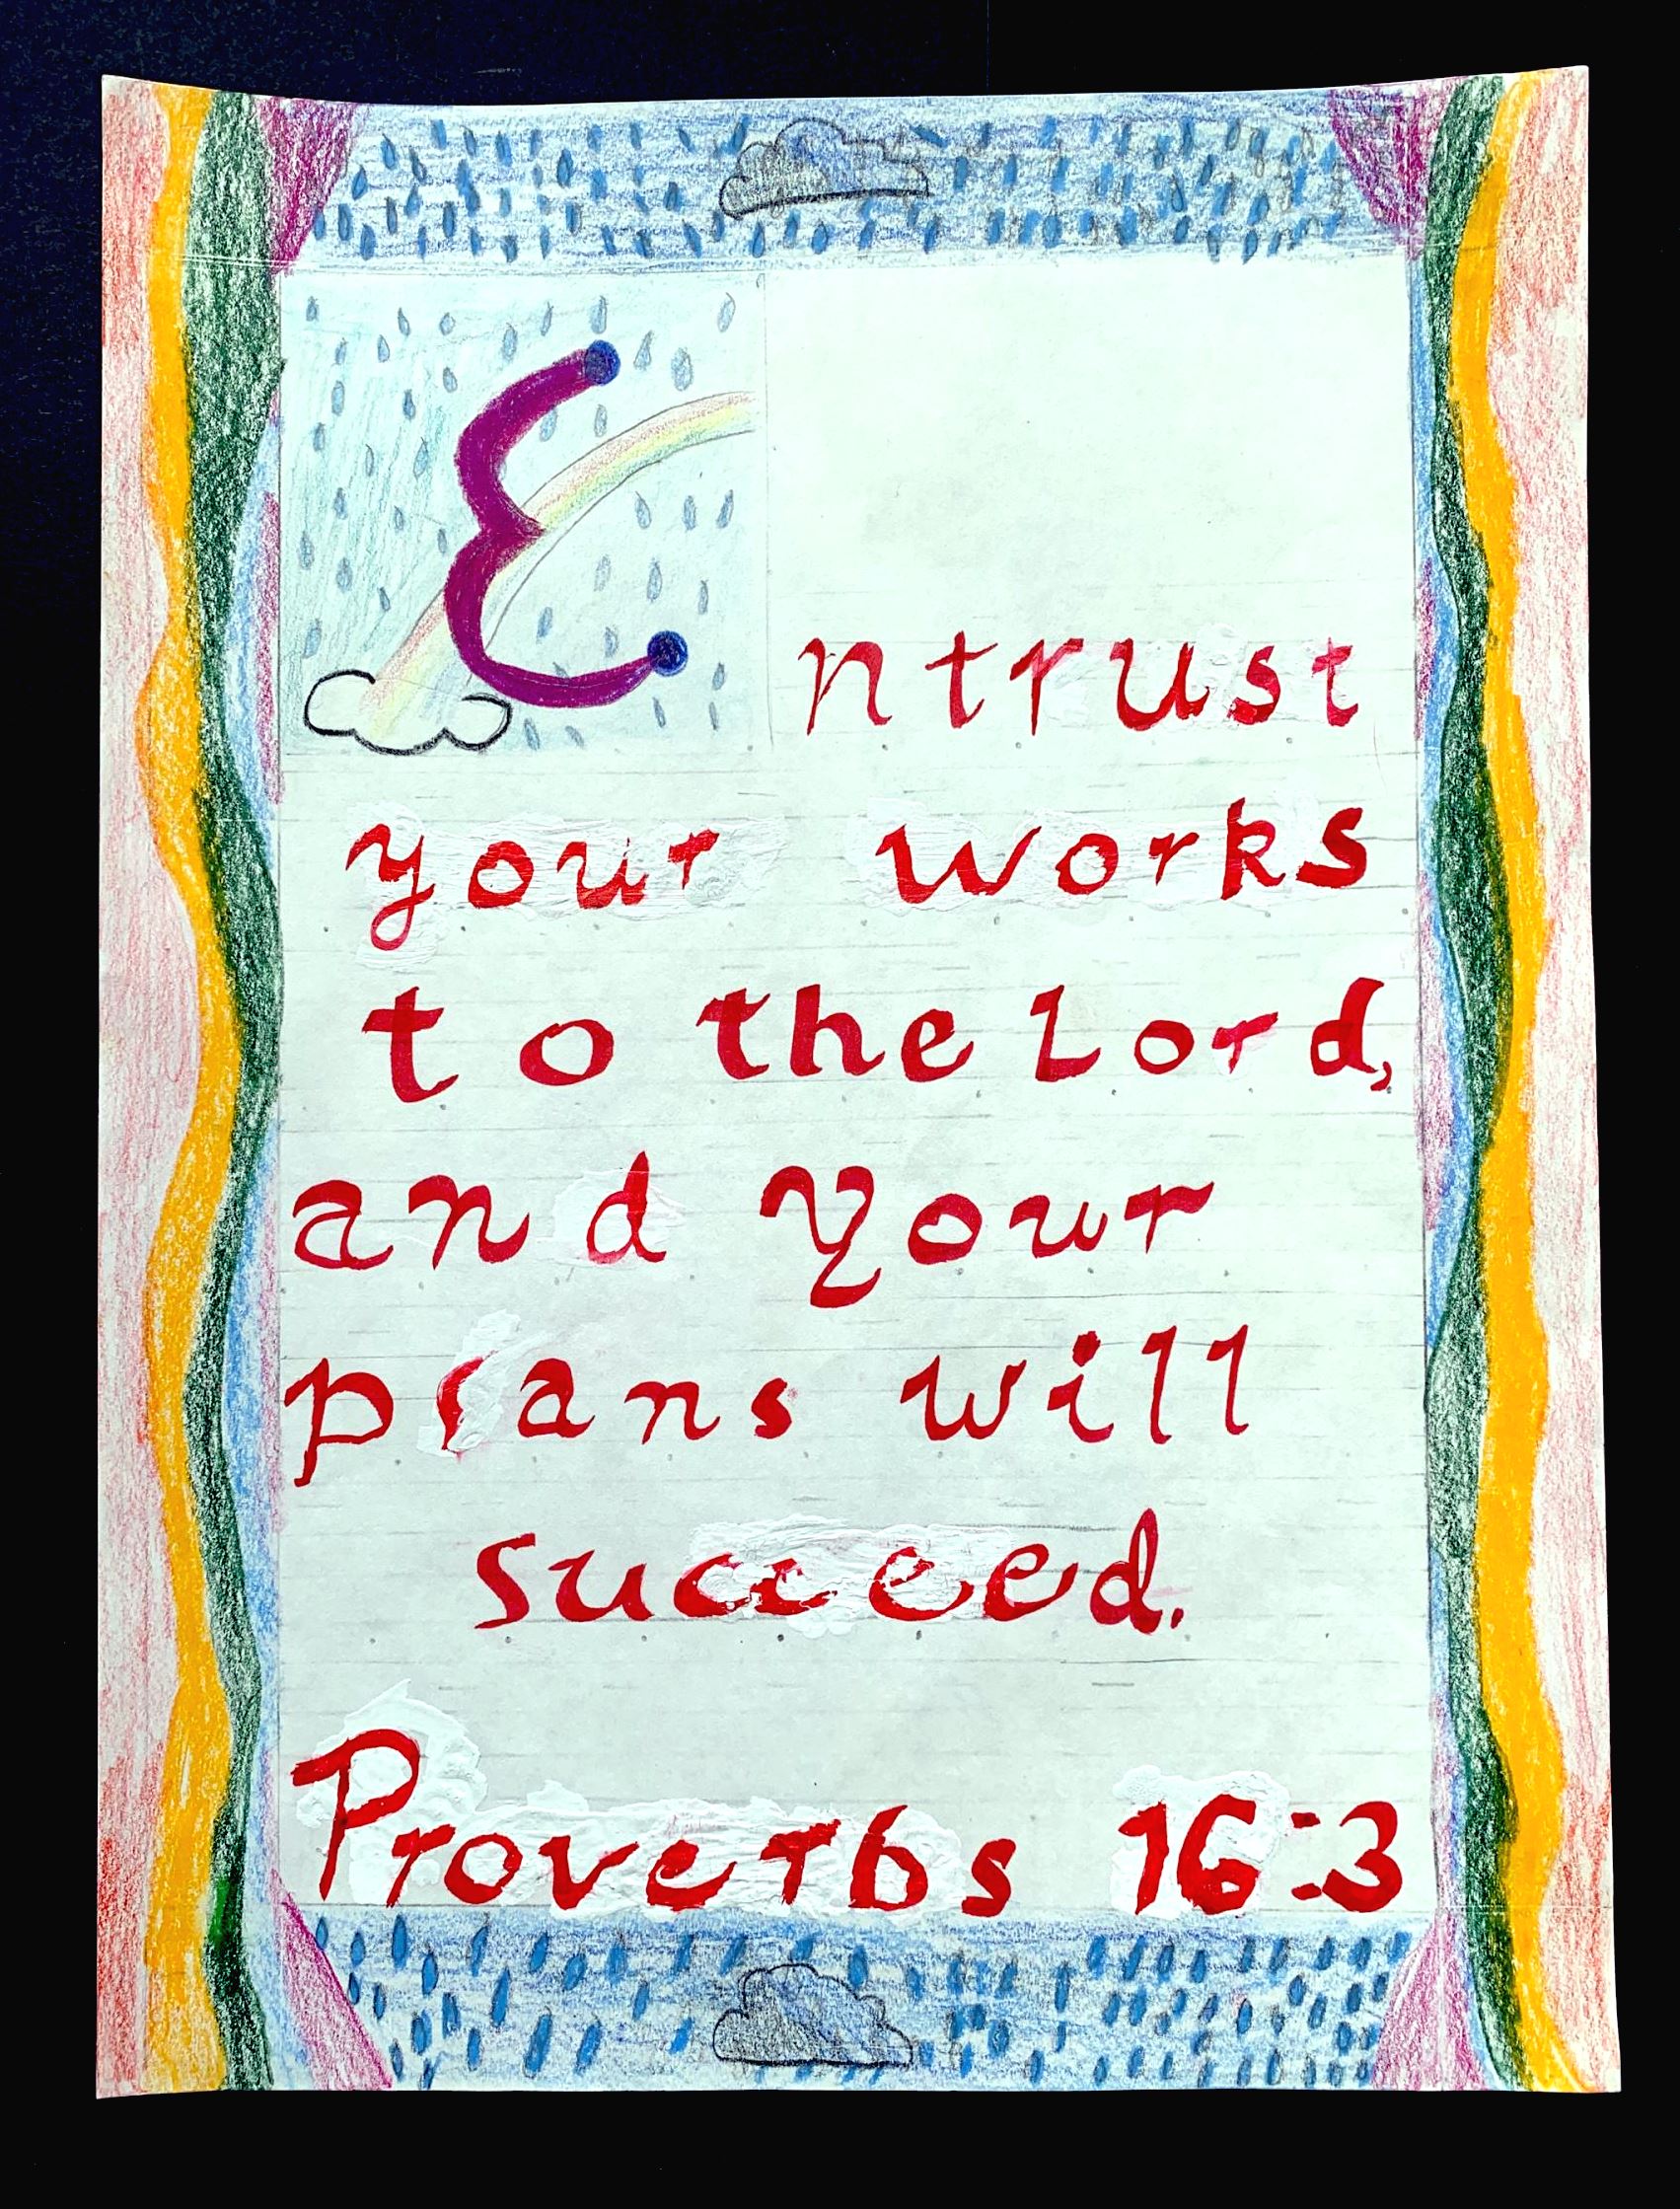 Entrust
your works
to the Lord,
and your
plans will
succeed.
Proverbs 16:3